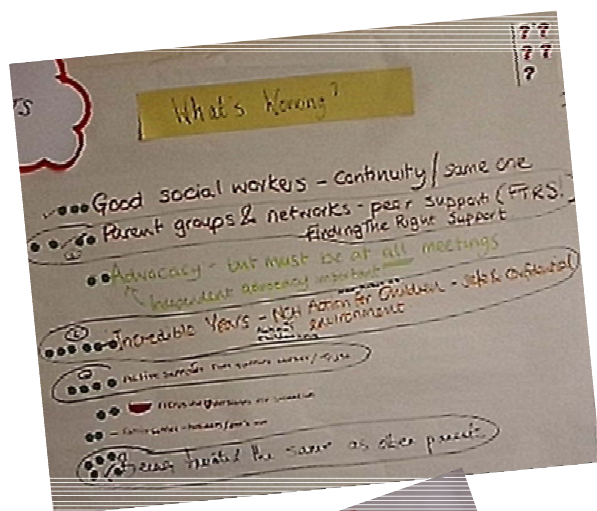 ? ?
? ?
?
What's Working?
Good social workers - continuity / same one
Parent groups & networks - peer support (FTRS!
Finding The Right Support
Advocacy - but must be at all meetings
Independent advocacy important
Incredible Years - NCH Action for Children - safe & confidential
environment
Active support from
being treated the same as other parents